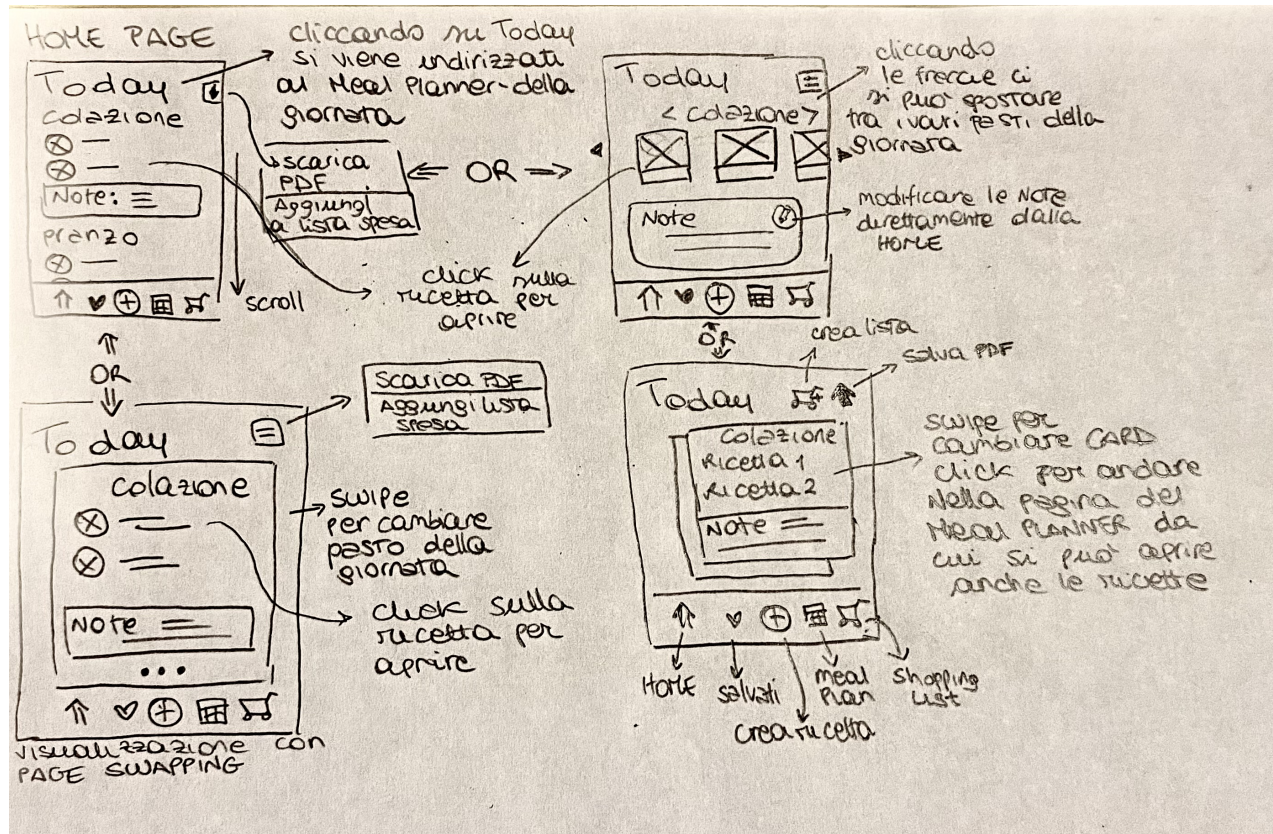 HOME PAGE
Today
colazione
Note:
pranzo
cliccando su Today
si viene indirizzati
al Meal Planner della
giornata
scarica
PDF
Aggiungi
a lista spesa
scroll
OR
click sulla
ricetta per
aprire
Today
< colazione >
Note
cliccando
le freccie ci
si può spostare
tra i vari pasti della
giornata
modificare le Note
direttamente dalla
HOME
OR
Today
colazione
Note
visualizzazione con
PAGE SWAPPING
Scarica PDF
Aggiungi lista
spesa
swipe
per cambiare
pasto della
giornata
click sulla
ricetta per
aprire
OR
crea lista
salva PDF
Today
colazione
Ricetta 1
Ricetta 2
Note
swipe per
cambiare CARD
click per andare
nella pagina del
Meal PLANNER da
cui si può aprire
anche le ricette
HOME
salvati
crea ricetta
meal
Plan
shopping
list